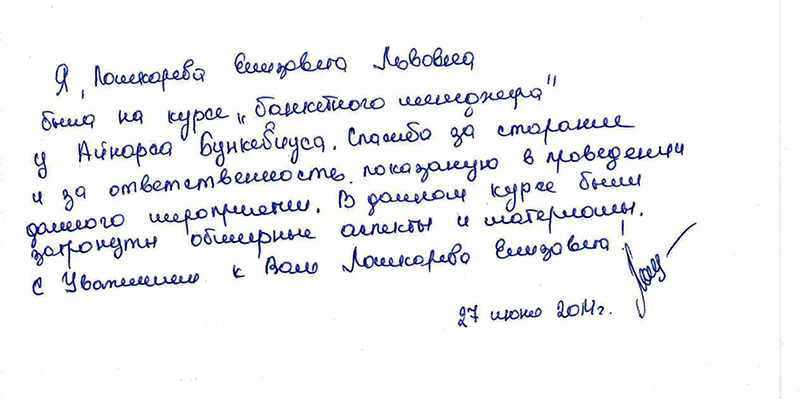 Я, Лашкарева Елизавета Львовна
была на курсе „банкетного менеджера"
у Айнарса Бункевиуса. Спасибо за старание
и за ответственность показаную в проведении
данного мероприятии. В данном курсе были
затронуты обширные аспекты и материалы.
С Уважением к Вам Лашкарева Елизавета!
27 июня 2014г.